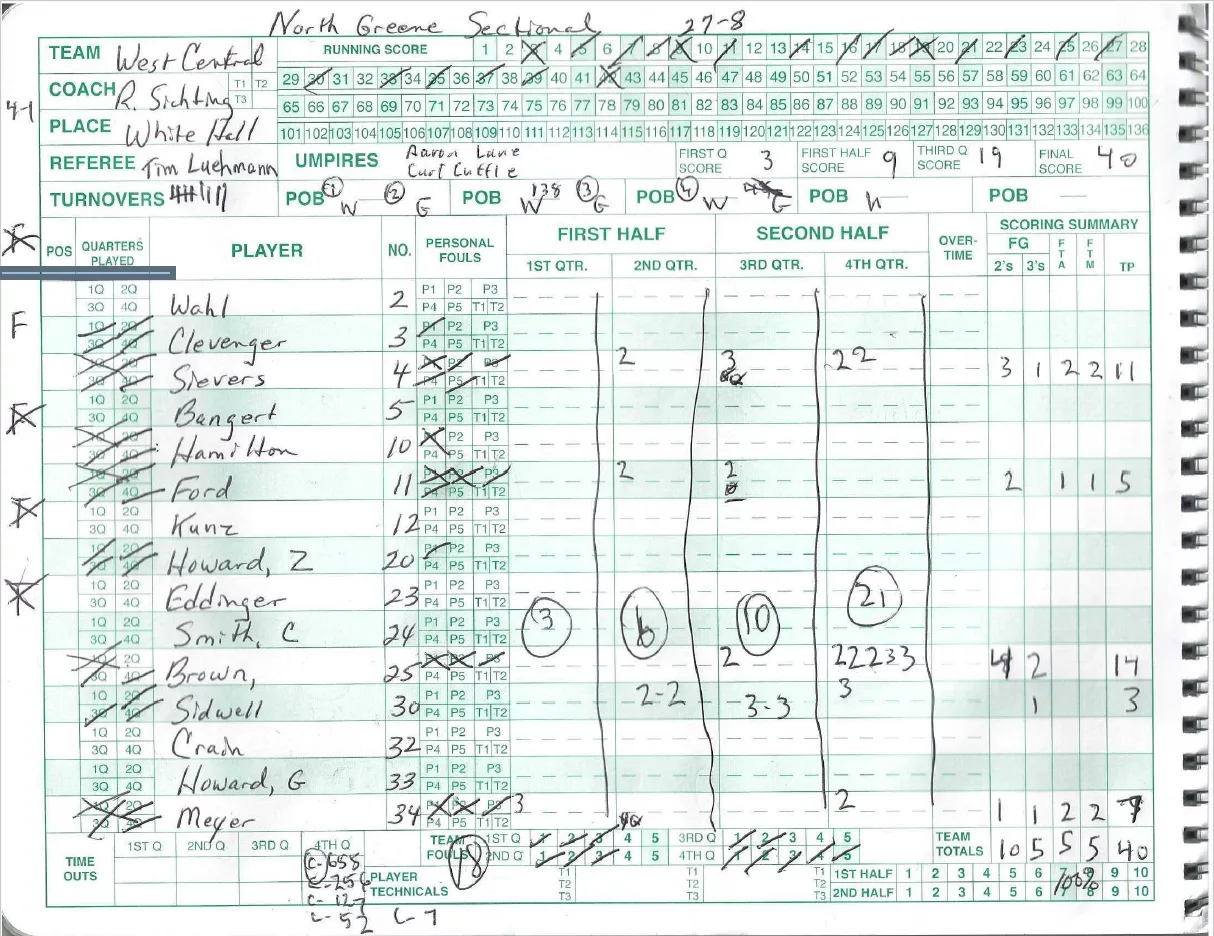 North Greene Sectional 27-8
TEAM West Central RUNNING SCORE 1 2 3 4 5 6 7 8 9 10 11 12 13 14 15 16 17 18 19 20 21 22 23 24 25 26 27 28
29 30 31 32 33 34 35 36 37 38 39 40 41 42 43 44 45 46 47 48 49 50 51 52 53 54 55 56 57 58 59 60 61 62 63 64
4-1 COACH R. Sichting T1 T2 T3 65 66 67 68 69 70 71 72 73 74 75 76 77 78 79 80 81 82 83 84 85 86 87 88 89 90 91 92 93 94 95 96 97 98 99 100
PLACE White Hall 101 102 103 104 105 106 107 108 109 110 111 112 113 114 115 116 117 118 119 120 121 122 123 124 125 126 127 128 129 130 131 132 133 134 135 136
REFEREE Tim Luehmann UMPIRES Aaron Lane Curt Cuttle FIRST Q SCORE 3 FIRST HALF SCORE 9 THIRD Q SCORE 19 FINAL SCORE 40
TURNOVERS POB 1 W 2 G POB 138 W 3 G POB 4 W G POB POB —
POS QUARTERS PLAYED PLAYER NO. PERSONAL FOULS FIRST HALF SECOND HALF OVER-TIME SCORING SUMMARY
1ST QTR. 2ND QTR. 3RD QTR. 4TH QTR. FG 2's 3's FTA FTM TP
1Q 2Q 3Q 4Q Wahl 2 P1 P2 P3 P4 P5 T1 T2
F 1Q 2Q 3Q 4Q Clevenger 3 P1 P2 P3 P4 P5 T1 T2
1Q 2Q 3Q 4Q Sievers 4 P1 P2 P3 P4 P5 T1 T2 2 3 22 3 1 2 2 11
1Q 2Q 3Q 4Q Bangert 5 P1 P2 P3 P4 P5 T1 T2
F 1Q 2Q 3Q 4Q Hamilton 10 P1 P2 P3 P4 P5 T1 T2
1Q 2Q 3Q 4Q Ford 11 P1 P2 P3 P4 P5 T1 T2 2 2 2 1 1 5
F 1Q 2Q 3Q 4Q Kunz 12 P1 P2 P3 P4 P5 T1 T2
1Q 2Q 3Q 4Q Howard, Z 20 P1 P2 P3 P4 P5 T1 T2
1Q 2Q 3Q 4Q Eddinger 23 P1 P2 P3 P4 P5 T1 T2
1Q 2Q 3Q 4Q Smith, C 24 P1 P2 P3 P4 P5 T1 T2 3 6 10 21
1Q 2Q 3Q 4Q Brown, 25 P1 P2 P3 P4 P5 T1 T2 2 22233 4 2 14
1Q 2Q 3Q 4Q Sidwell 30 P1 P2 P3 P4 P5 T1 T2 2-2 3-3 3 1 3
1Q 2Q 3Q 4Q Crain 32 P1 P2 P3 P4 P5 T1 T2
1Q 2Q 3Q 4Q Howard, G 33 P1 P2 P3 P4 P5 T1 T2
1Q 2Q 3Q 4Q Meyer 34 P1 P2 P3 P4 P5 T1 T2 3 2 1 1 2 2 7
TIME OUTS 1ST Q 2ND Q 3RD Q 4TH Q TEAM FOULS 18 1ST Q 1 2 3 4 5 3RD Q 1 2 3 4 5 TEAM TOTALS 10 5 5 5 40
2ND Q 1 2 3 4 5 4TH Q 1 2 3 4 5 100%
C-658 PLAYER TECHNICALS T1 T2 T3 T1 T2 T3 T1 T2 T3 1ST HALF 1 2 3 4 5 6 7 8 9 10
C-256 2ND HALF 1 2 3 4 5 6 7 8 9 10
C-127
C-52 C-7